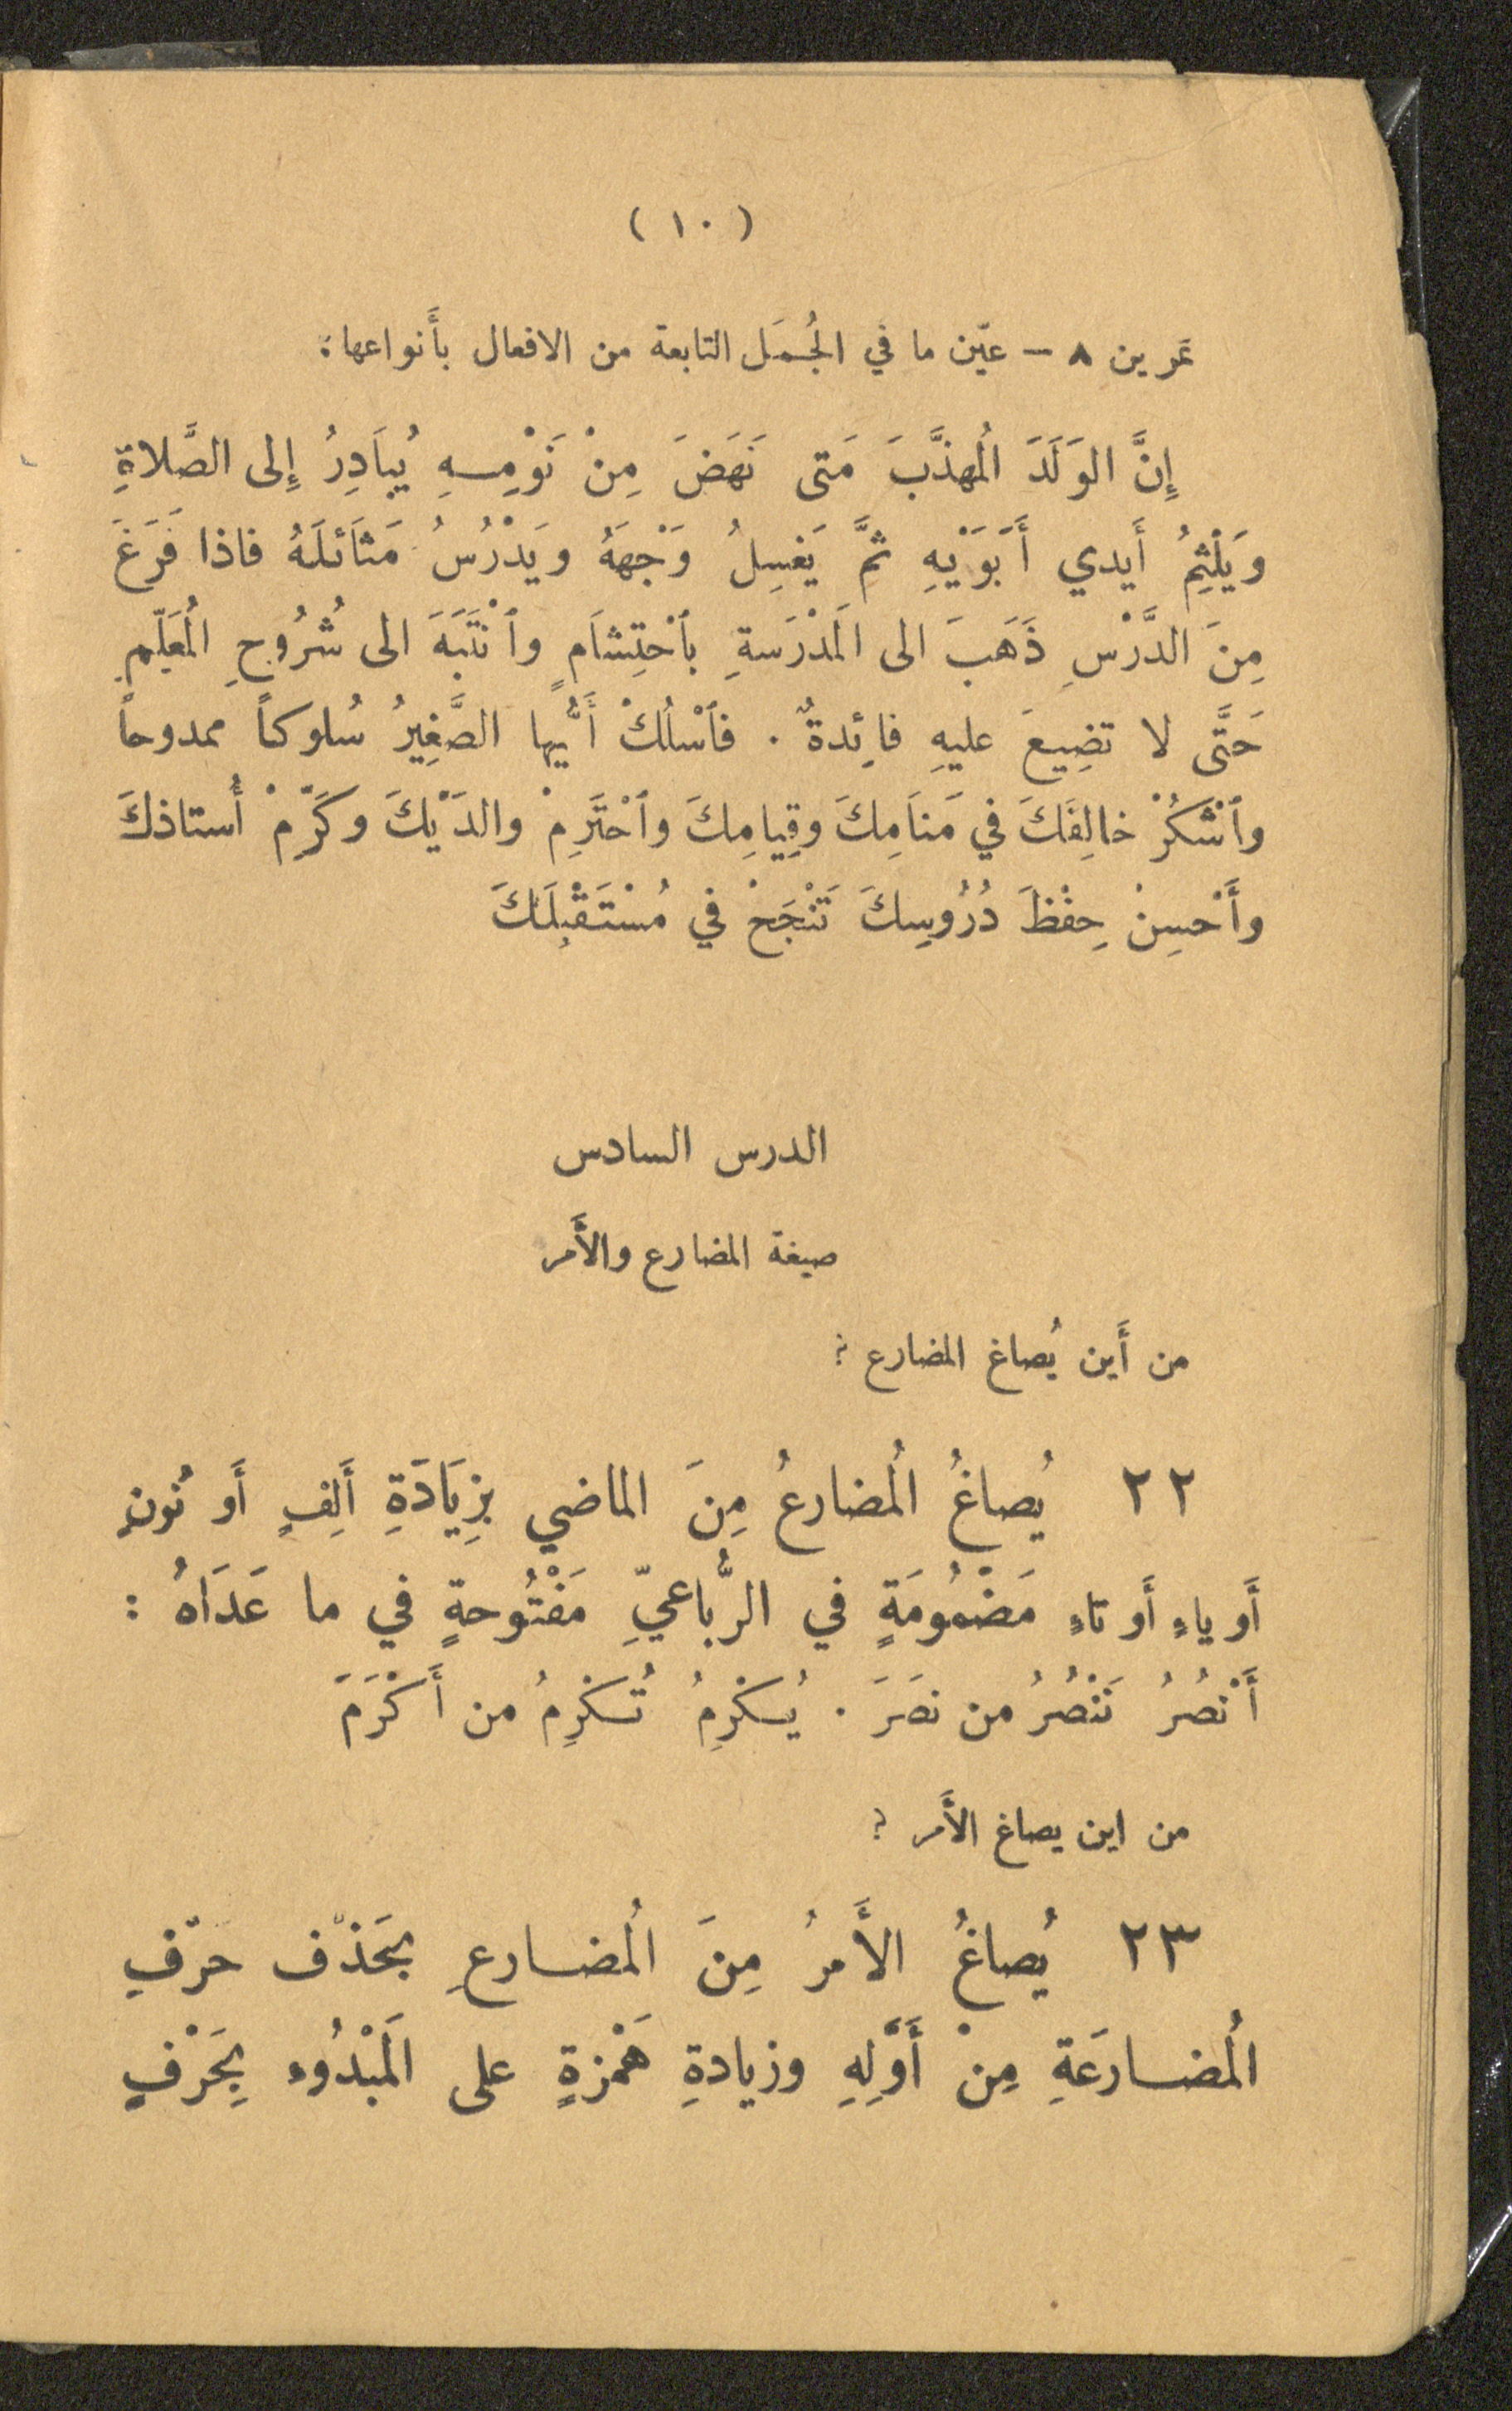 ( ١٠ )
تمرين ٨ – عيّن ما في الجُمَل التابعة من الافعال بأَنواعها:
إِنَّ الوَلَدَ المُهذَّبَ مَتى نَهَضَ مِنْ نَوْمِهِ يُبَادِرُ إِلى الصَّلاةِ
وَيَلْثِمُ أَيدي أَبَوَيْهِ ثمَّ يَغسِلُ وَجْهَهُ ويَدْرُسُ مَثَائلَهُ فاذا فَرَغَ
مِنَ الدَّرْسِ ذَهَبَ الى المَدْرَسةِ بٱحْتِشَامٍ وٱنْتَبَهَ الى شُرُوحِ المُعَلِّمِ
حَتَّى لا تضِيعَ عليهِ فائِدةٌ . فٱسْلُكْ أَيُّها الصَّغِيرُ سُلوكاً ممدوحاً
وٱشْكُرْ خالِقَكَ في مَنَامِكَ وقِيامِكَ وٱحْتَرِمْ والدَيْكَ وكَرِّمْ أُستاذكَ
وأَحْسِنْ حِفْظَ دُرُوسِكَ تَنْجَحْ في مُسْتَقْبِلَكَ
الدرس السادس
صيغة المضارع والأَمر
من أَين يُصاغ المضارع ؟
٢٢ يُصاغُ المُضارعُ مِنَ الماضي بزِيَادَةِ أَلِفٍ أَو نُونٍ
أَو ياءٍ أَو تاءٍ مَضْمُومَةٍ في الرُّباعيِّ مَفْتُوحةٍ في ما عَدَاهُ :
أَنْصُرُ نَنْصُرُ من نصَرَ . يُكْرِمُ تُكْرِمُ من أَكْرَمَ
من اين يصاغ الأَمر ؟
٢٣ يُصاغُ الأَمرُ مِنَ المُضارعِ بحَذْف حَرْفِ
المُضارَعَةِ مِنْ أَوَّلِهِ وزيادةِ هَمْزةٍ على المَبْدُوء بِحَرْفٍ